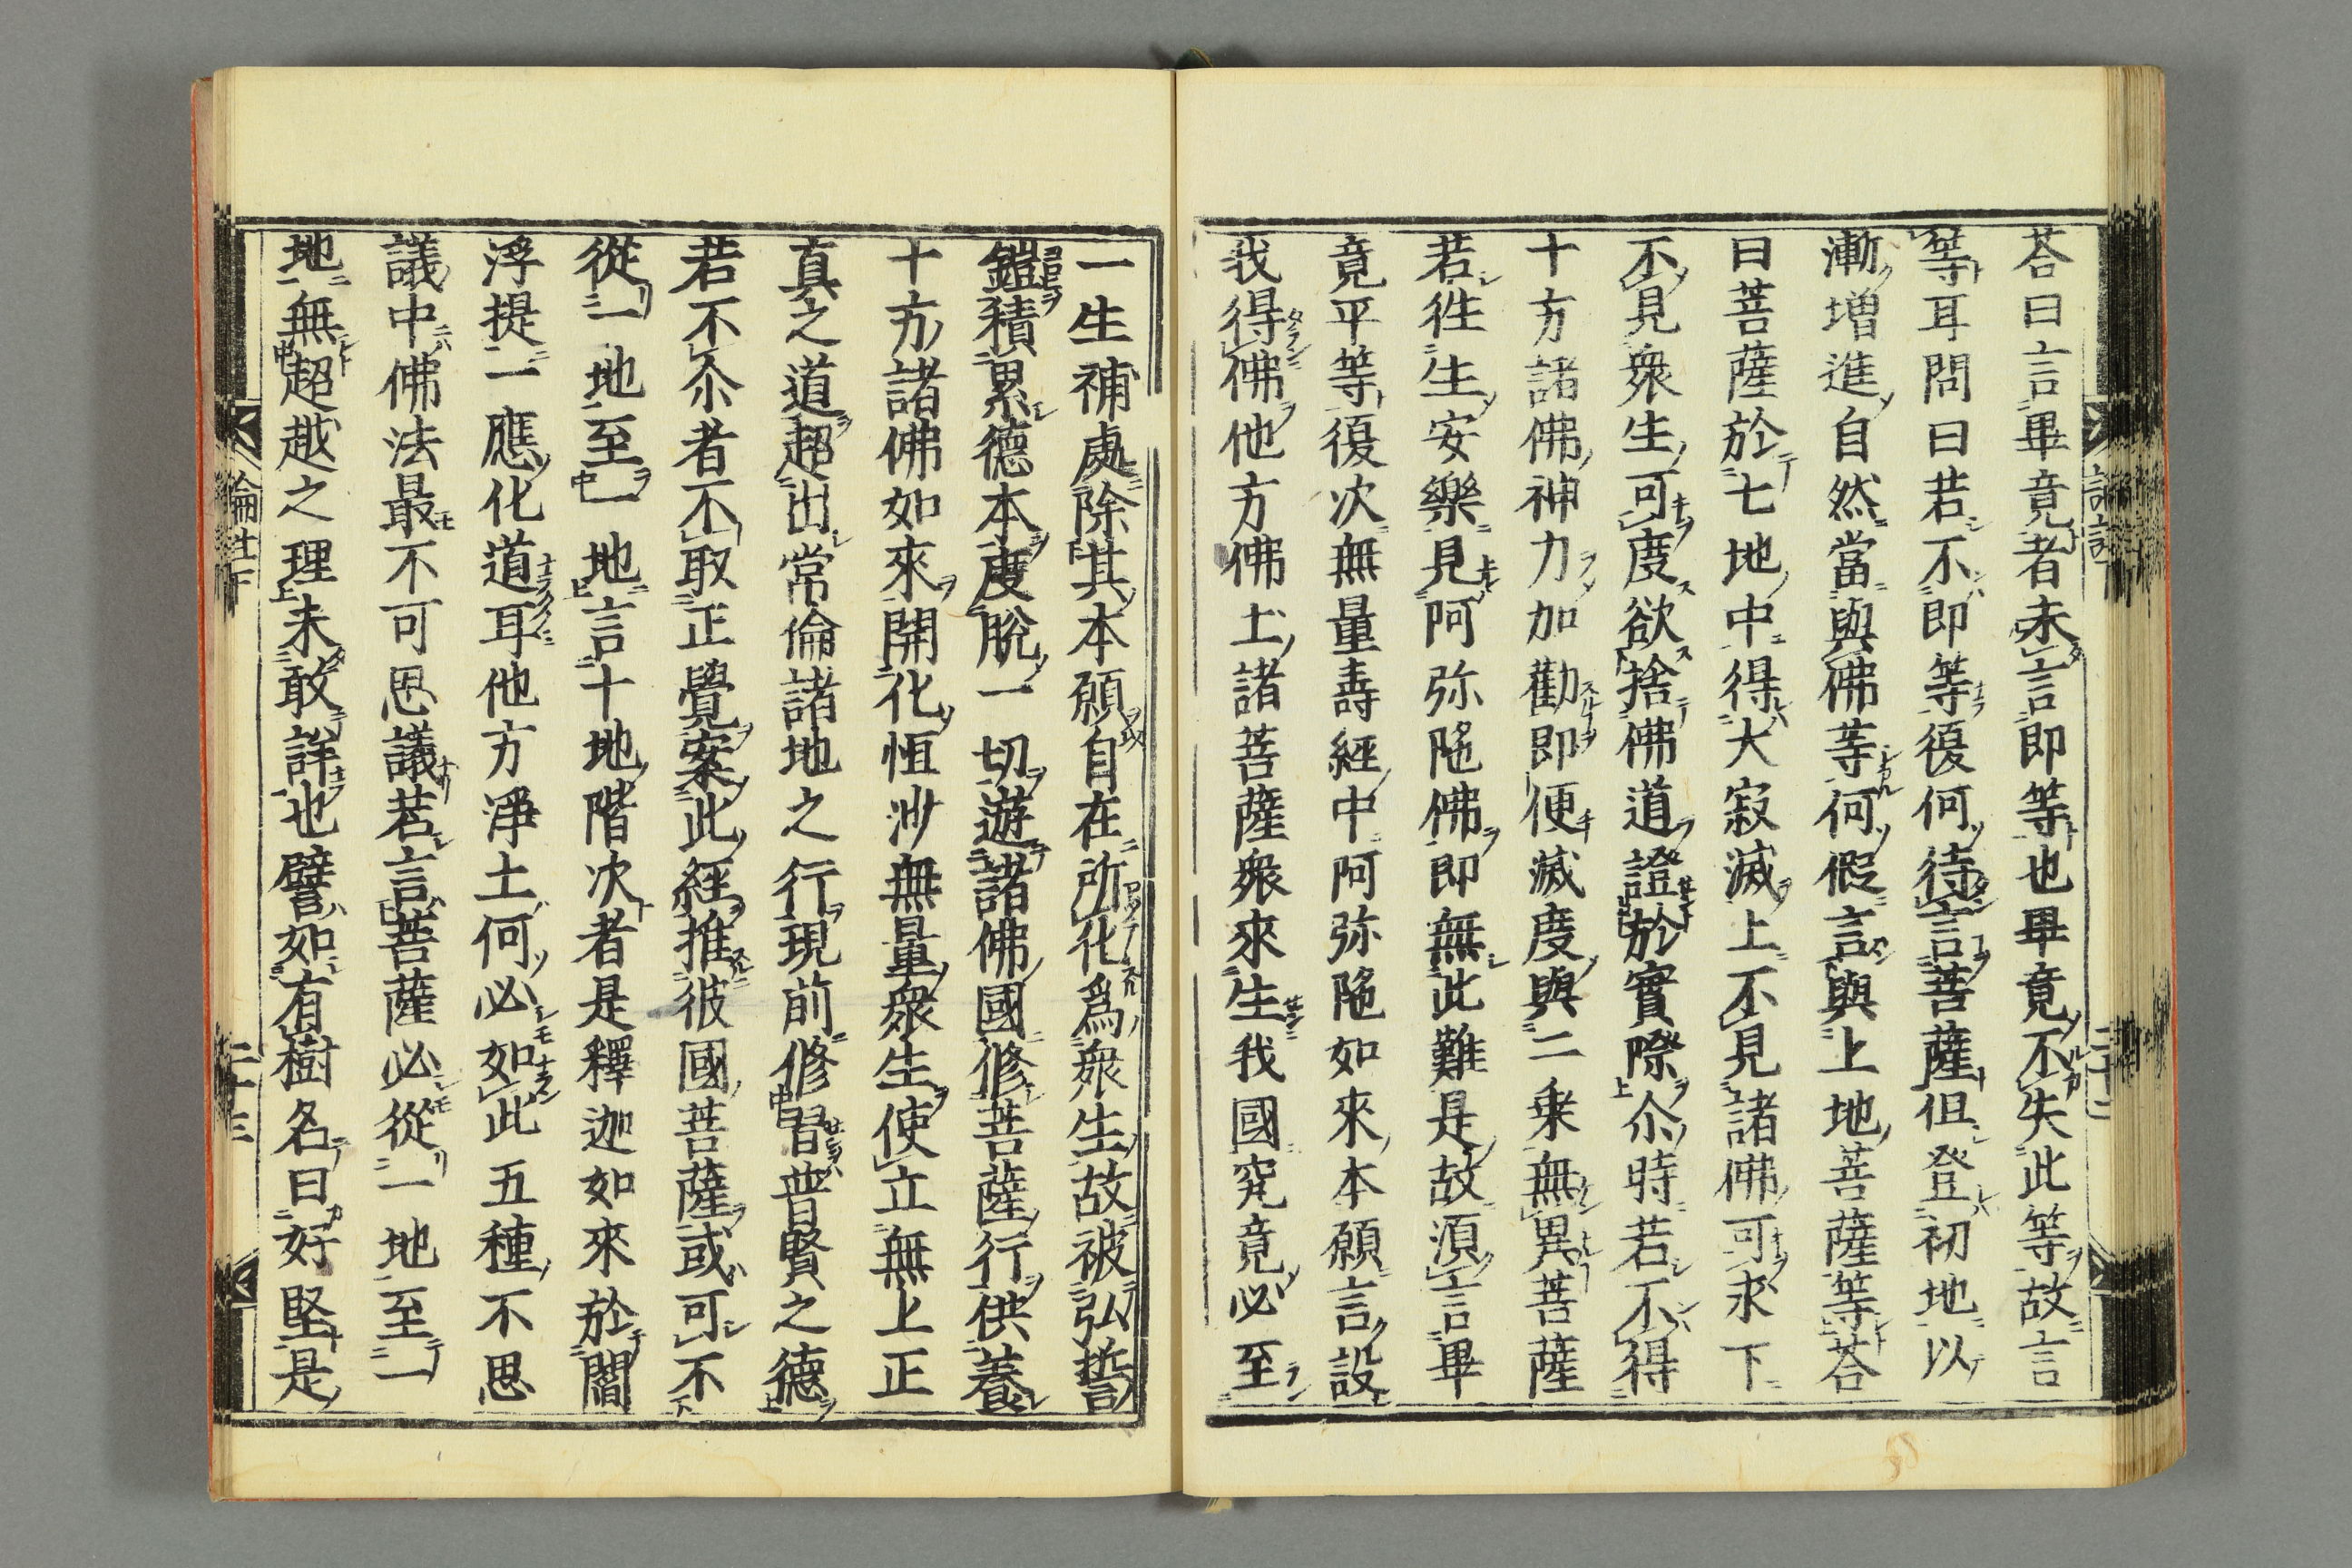 荅曰言畢竟者未言即等也畢竟不失此等故言
等耳問曰若不即等復何待言菩薩但登初地以
漸增進自然當與佛等何假言與上地菩薩等荅
曰菩薩於七地中得大寂滅上不見諸佛可求下
不見衆生可度欲捨佛道證於實際尒時若不得
十方諸佛神力加勸即便滅度與二乘無異菩薩
若徃生安樂見阿弥陁佛即無此難是故湏言畢
竟平等復次無量壽經中阿弥陁如來本願言設
我得佛他方佛土諸菩薩衆來生我國究竟必至
一生補處除其本願自在所化爲衆生故被弘誓
鎧積累德本度脫一切遊諸佛國修菩薩行供養
十方諸佛如來開化恒沙無量衆生使立無上正
真之道超出常倫諸地之行現前修習普賢之德
若不尒者不取正覺案此經推彼國菩薩或可不
從一地至一地言十地階次者是釋迦如來於閻
浮提一應化道耳他方淨土何必如此五種不思
議中佛法最不可思議若言菩薩必從一地至一
地無超越之理未敢詳也譬如有樹名曰好堅是
論註下
二十三